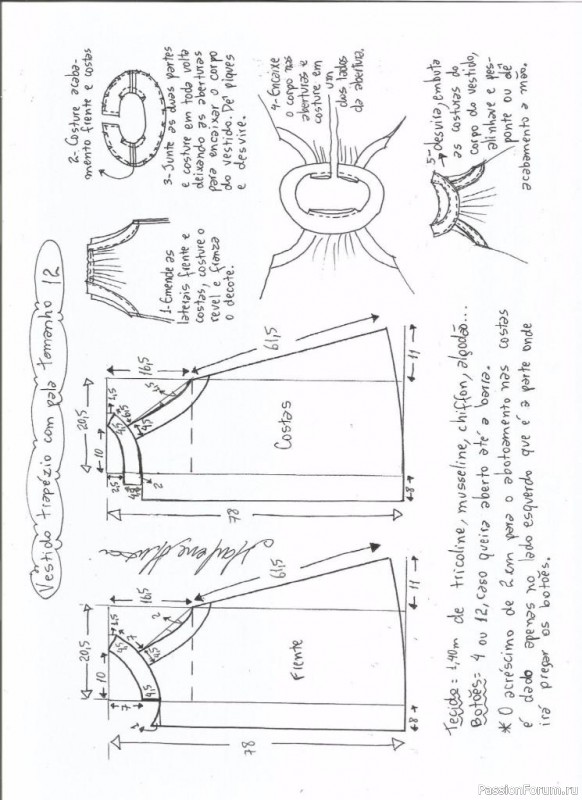 Vestido trapézio com pala tamanho 12
1-Emende as
laterais frente e
costas, costure o
revel e franza
o decote.
2-Costure acaba-
mento frente e costas
3-Junte as duas partes
e costure em toda volta
deixando as aberturas
para encaixar o corpo
do vestido. Dê piques
e desvire.
4-Encaixe
o corpo nas
aberturas e
costure em
um
dos lados
da abertura.
5-Desvira, embuta
as costuras do
corpo do vestido,
alinhave e pes-
ponte ou dê
acabamento a mão.
20,5
10
16,5
7
4,5
2
61,5
78
Frente
8
11
20,5
10
16,5
4,5
2,5
2
61,5
78
Costas
8
11
Tecido = 1,40m de tricoline, musseline, chiffon, algodão...
Botões= 4 ou 12, caso queira aberto até a barra.
* O acréscimo de 2 cm para o abotoamento nas costas
é dado apenas no lado esquerdo que é a parte onde
irá pregar os botões.
PassionForum.ru